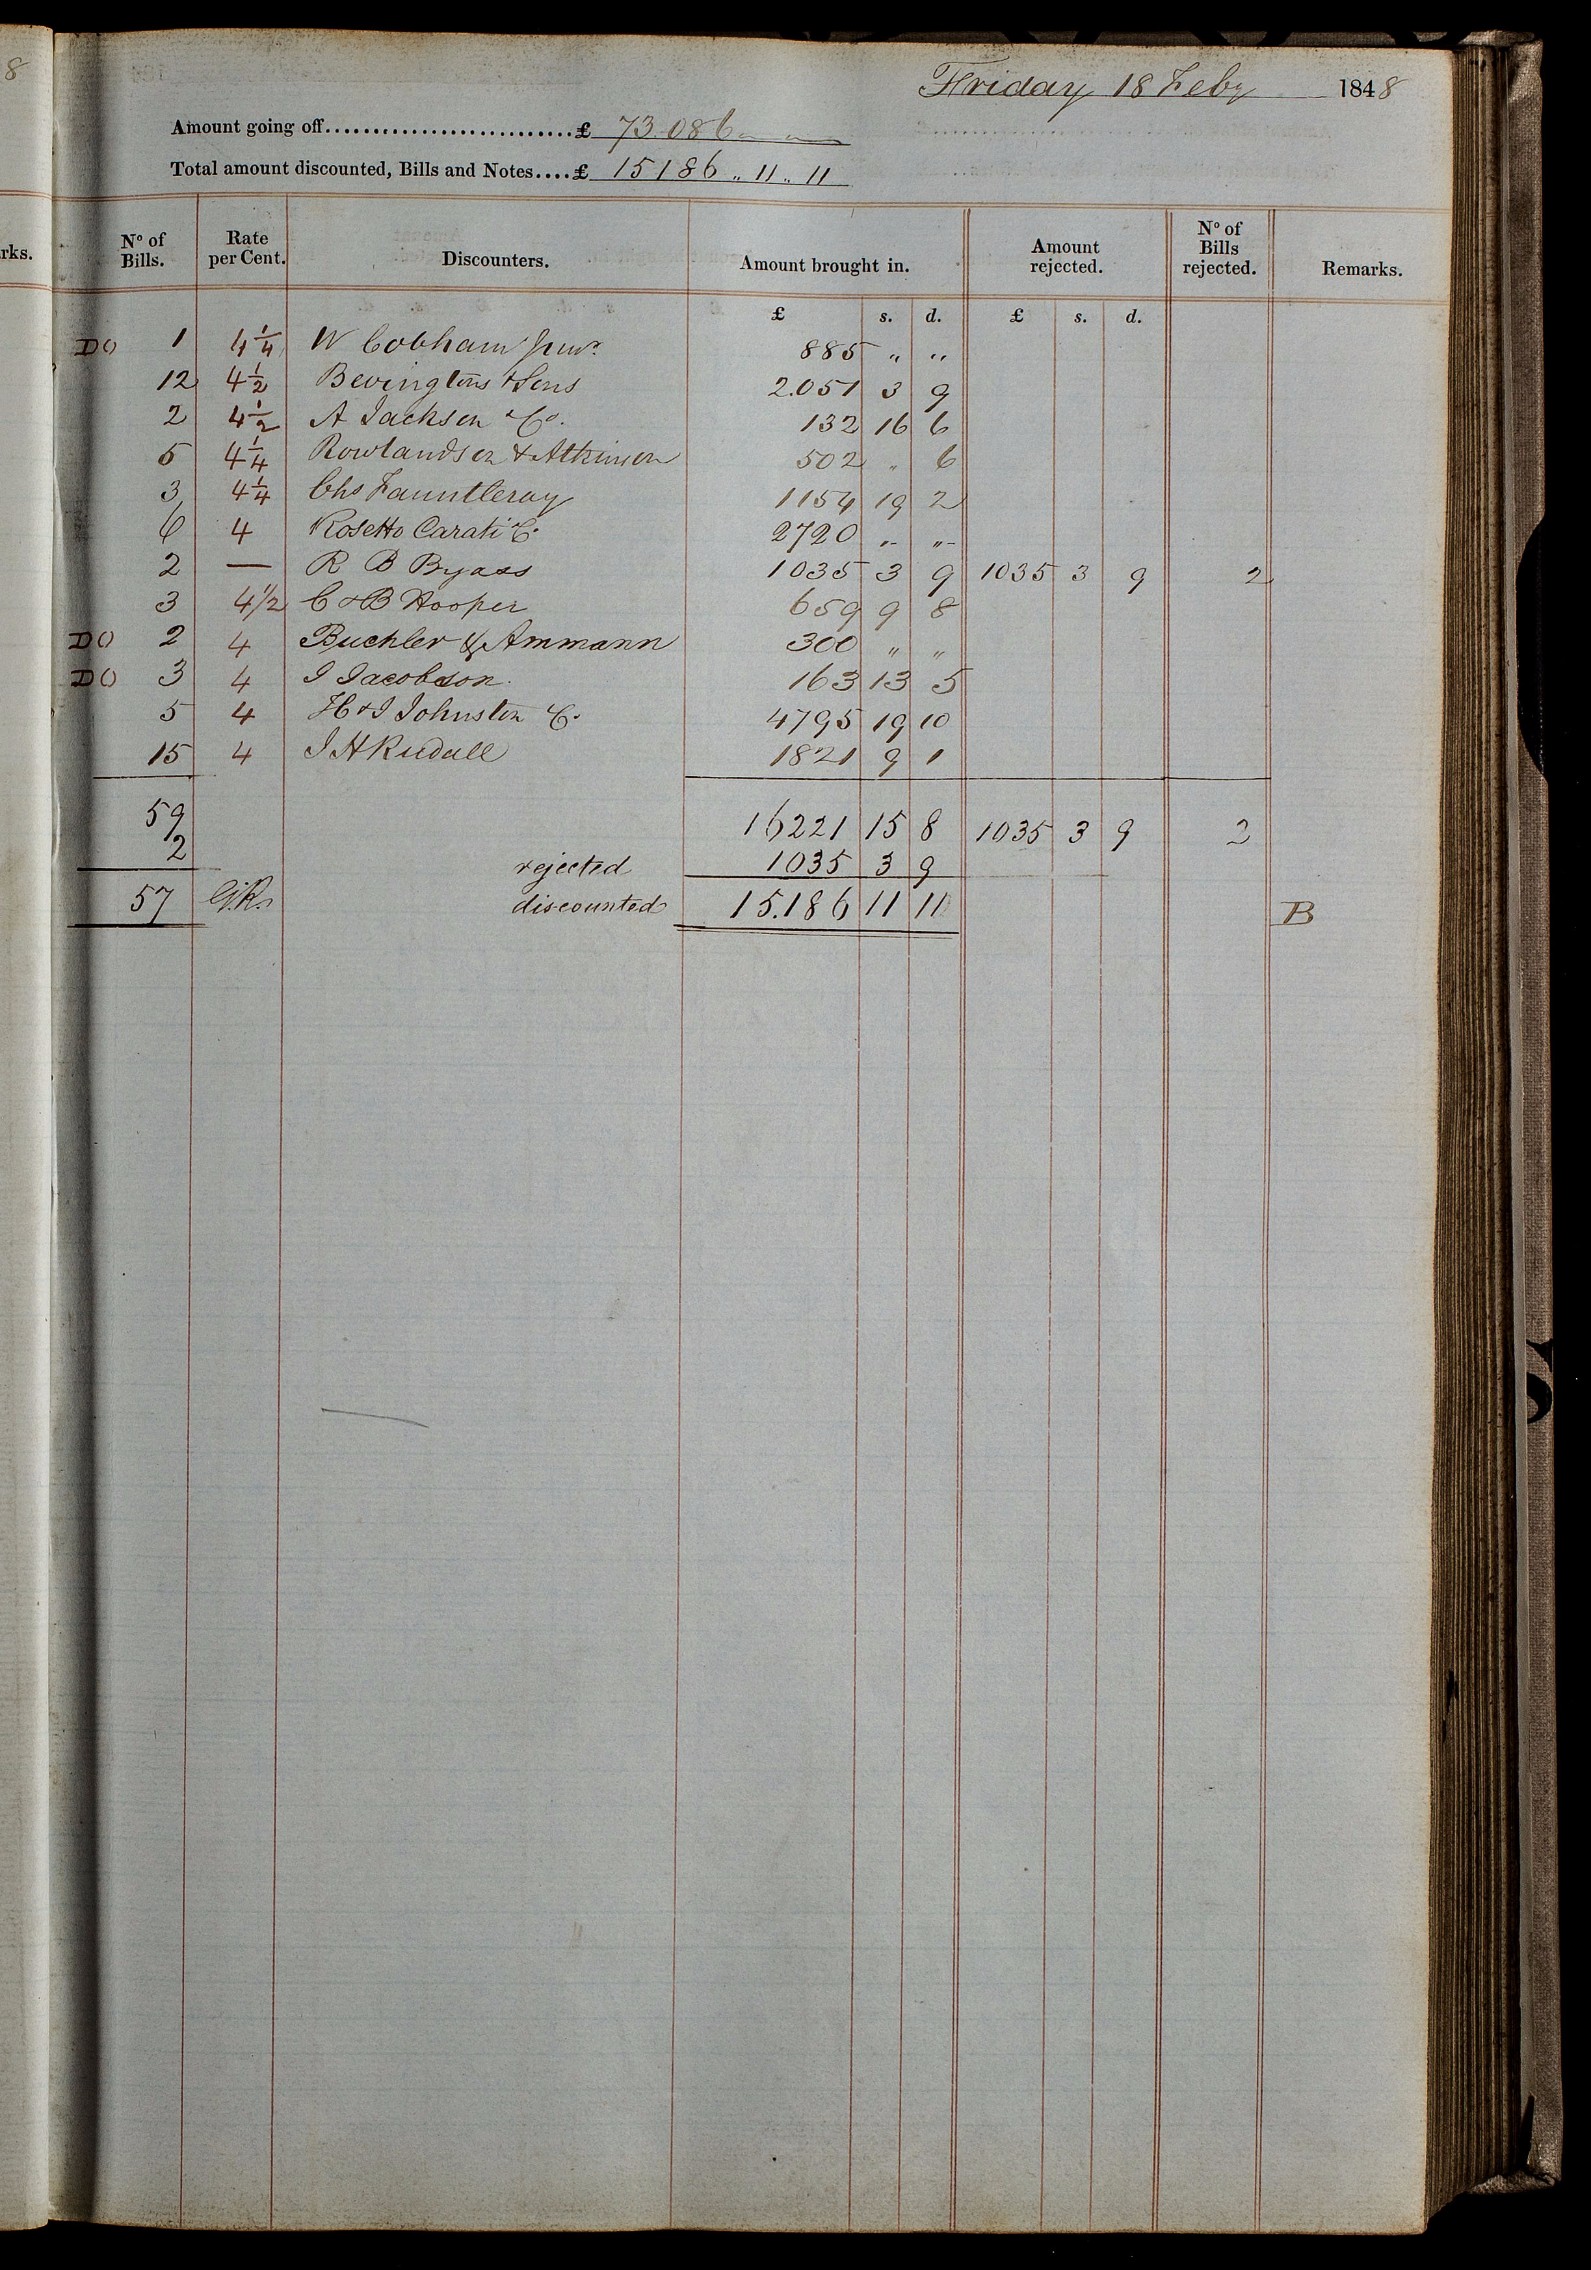 8
rks.
Friday 18 Feby 1848
Amount going off...........................£ 73.086 „ „
Total amount discounted, Bills and Notes....£ 15186 „ 11 „ 11
No of Bills. Rate per Cent. Discounters. Amount brought in. Amount rejected. No of Bills rejected. Remarks.
£ s. d. £ s. d.
DO 1 4 1/4 W Cobham Junr. 885 „ „
12 4 1/2 Bevingtons & Sons 2.051 3 9
2 4 1/2 A Jackson & Co. 132 16 6
5 4 1/4 Rowlandson & Atkinson 502 „ 6
3 4 1/4 Chs Fauntleroy 1154 19 2
6 4 Rosetto Carati & Co 2720 „ „
2 — R B Byass 1035 3 9 1035 3 9 2
3 4 1/2 C & B Hooper 659 9 8
DO 2 4 Buchler & Ammann 300 „ „
DO 3 4 I Jacobson. 163 13 5
5 4 H & I Johnston & Co 4795 19 10
15 4 J H Rudall 1821 9 1
59 16221 15 8 1035 3 9 2
2 rejected 1035 3 9
57 G.R. discounted 15.186 11 11 B